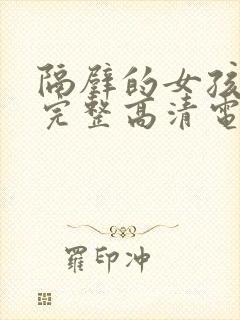 隔壁的女孩
完整高清電
羅印冲